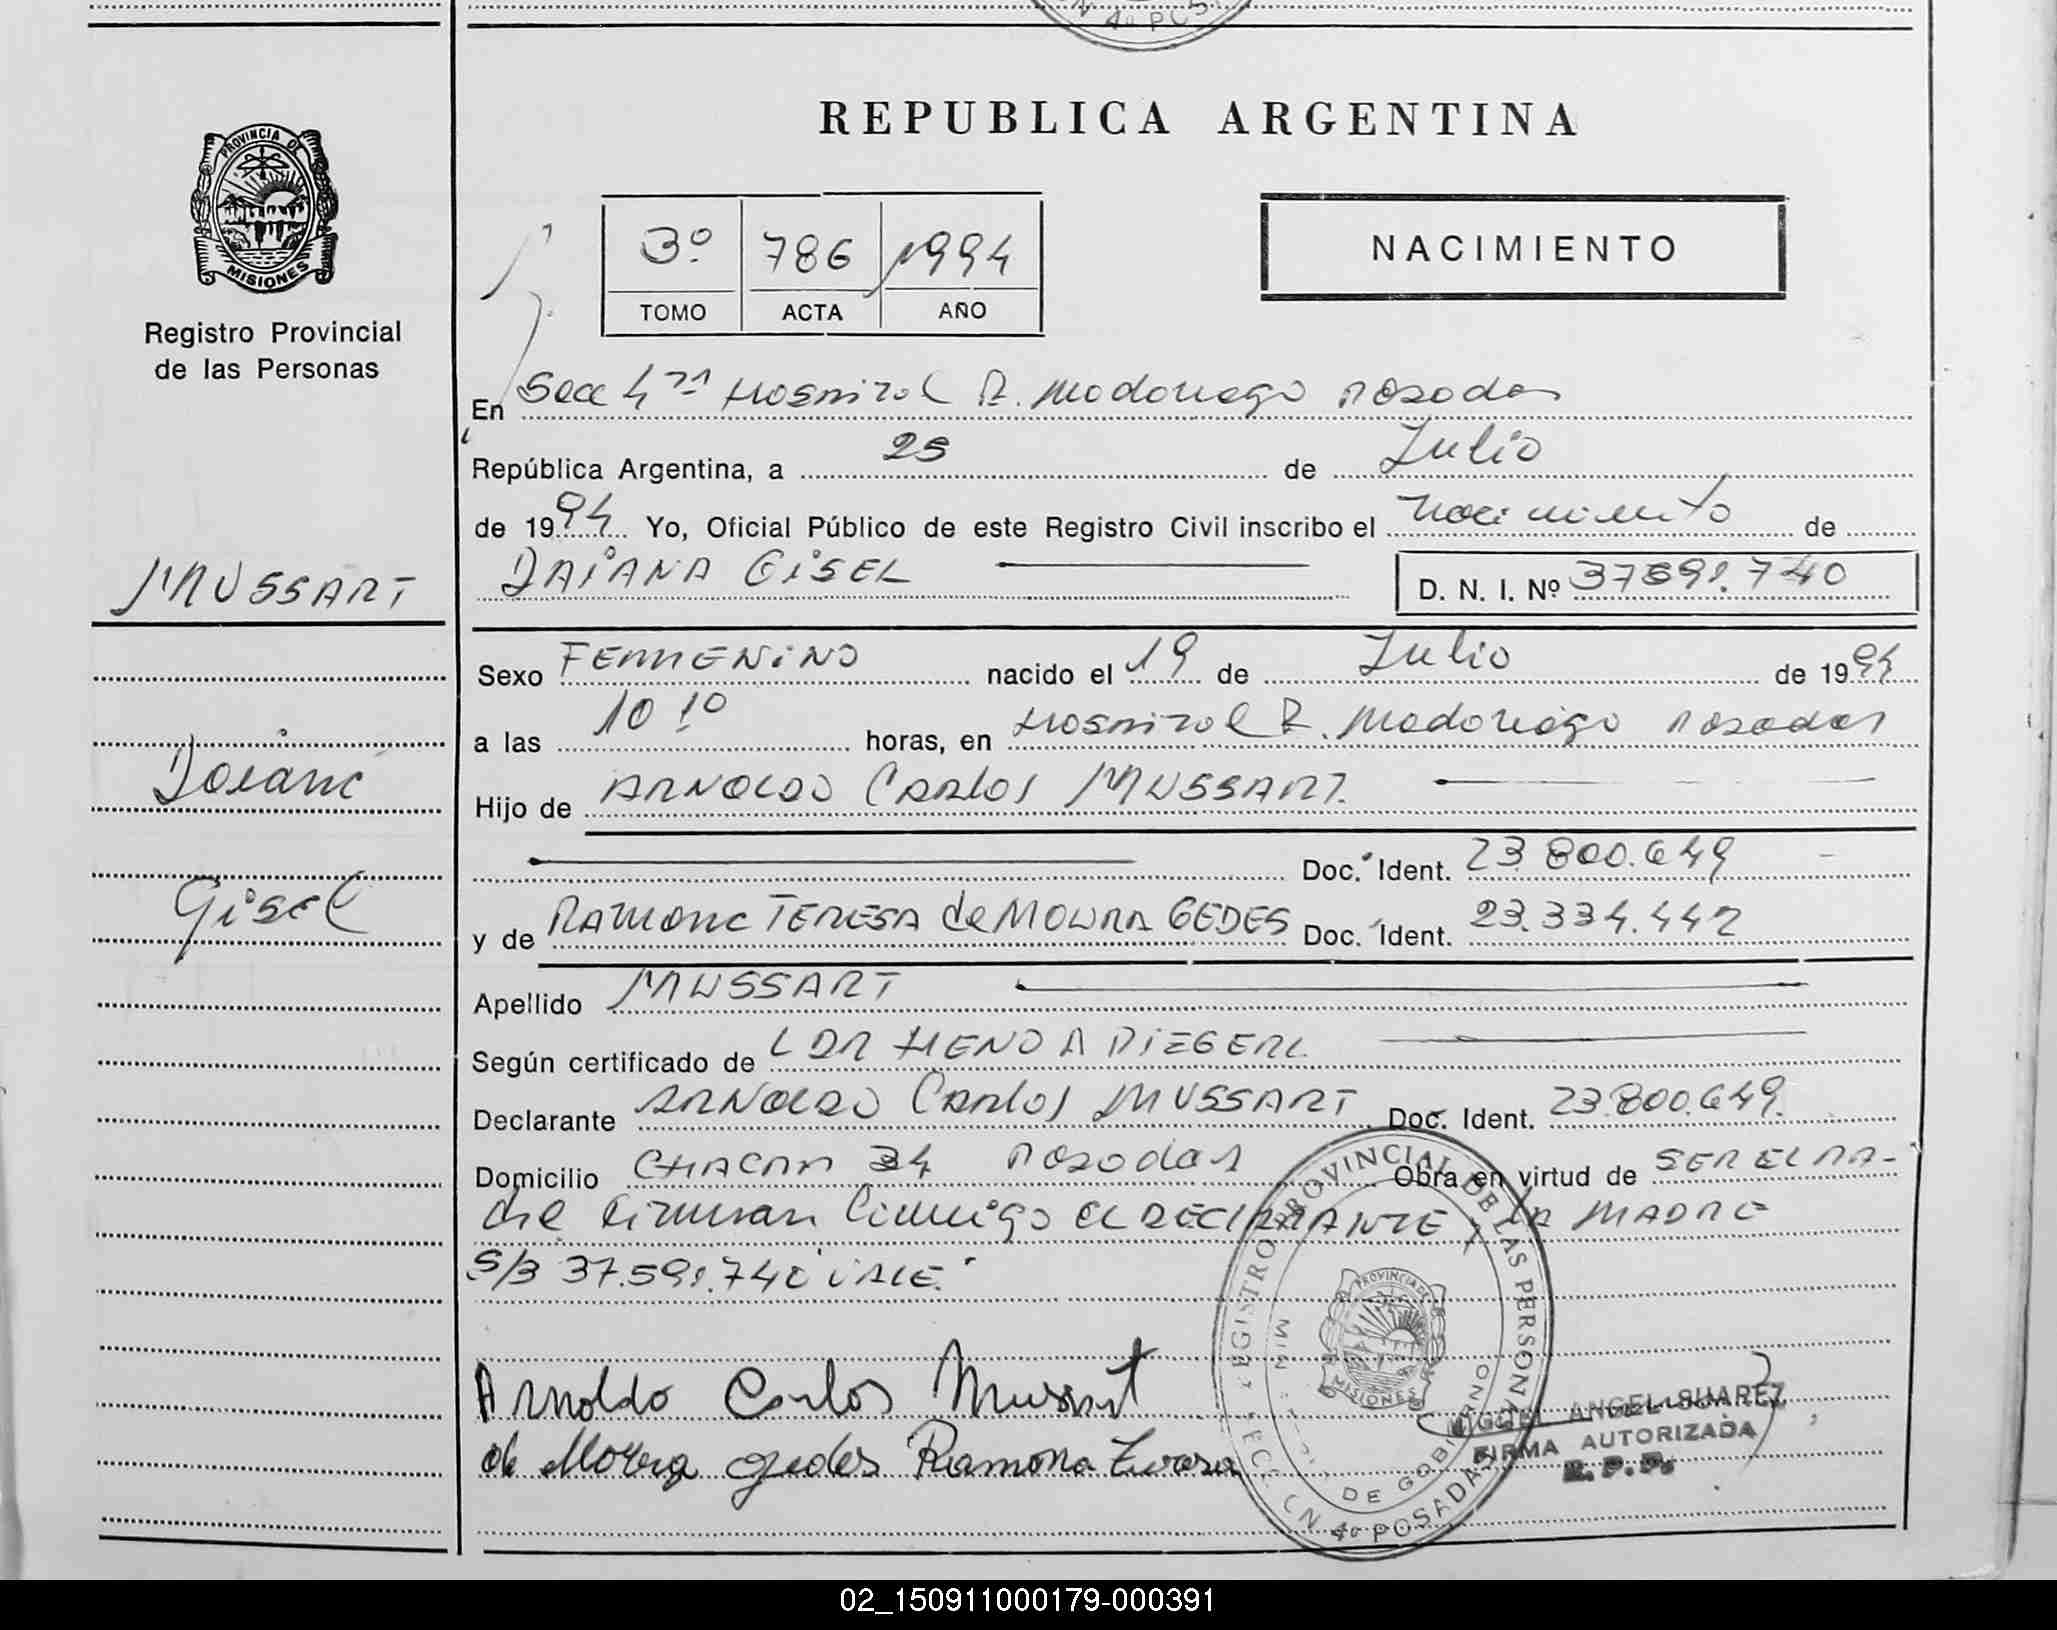 N 4a POS
REPUBLICA ARGENTINA
PROVINCIA DE
MISIONES
Registro Provincial
de las Personas
3º 786 1994
TOMO ACTA AÑO
NACIMIENTO
En Secc 4ta Hospital R. Madariaga Posadas
República Argentina, a 25 de Julio
de 1994 Yo, Oficial Público de este Registro Civil inscribo el nacimiento de
MUSSART
DAIANA GISEL D. N. I. Nº 37591.740
Sexo FEMENINO nacido el 19 de Julio de 1994
a las 10 10 horas, en Hospital R. Madariaga Posadas
Daiana
Hijo de ARNOLDO Carlos MUSSART.
Doc. Ident. 23.800.649
Gisel
y de RAMONA TERESA de MOURA GEDES Doc. Ident. 23.334.442
Apellido MUSSART
Según certificado de
Declarante ARNOLDO Carlos MUSSART Doc. Ident. 23.800.649.
Domicilio CHACRA 34 Posadas Obra en virtud de SER EL PA-
dre Firman Conmigo EL DECLARANTE y LA MADRE
S/B 37.591.740 VALE.
Arnoldo Carlos Mussart
de Moura gedes Ramona Teresa
REGISTRO PROVINCIAL DE LAS PERSONAS
PROVINCIA DE
MISIONES
DE GOBIERNO
SECCION 4a POSADAS
MIGUEL ANGEL SUAREZ
FIRMA AUTORIZADA
R.P.P.
02_150911000179-000391